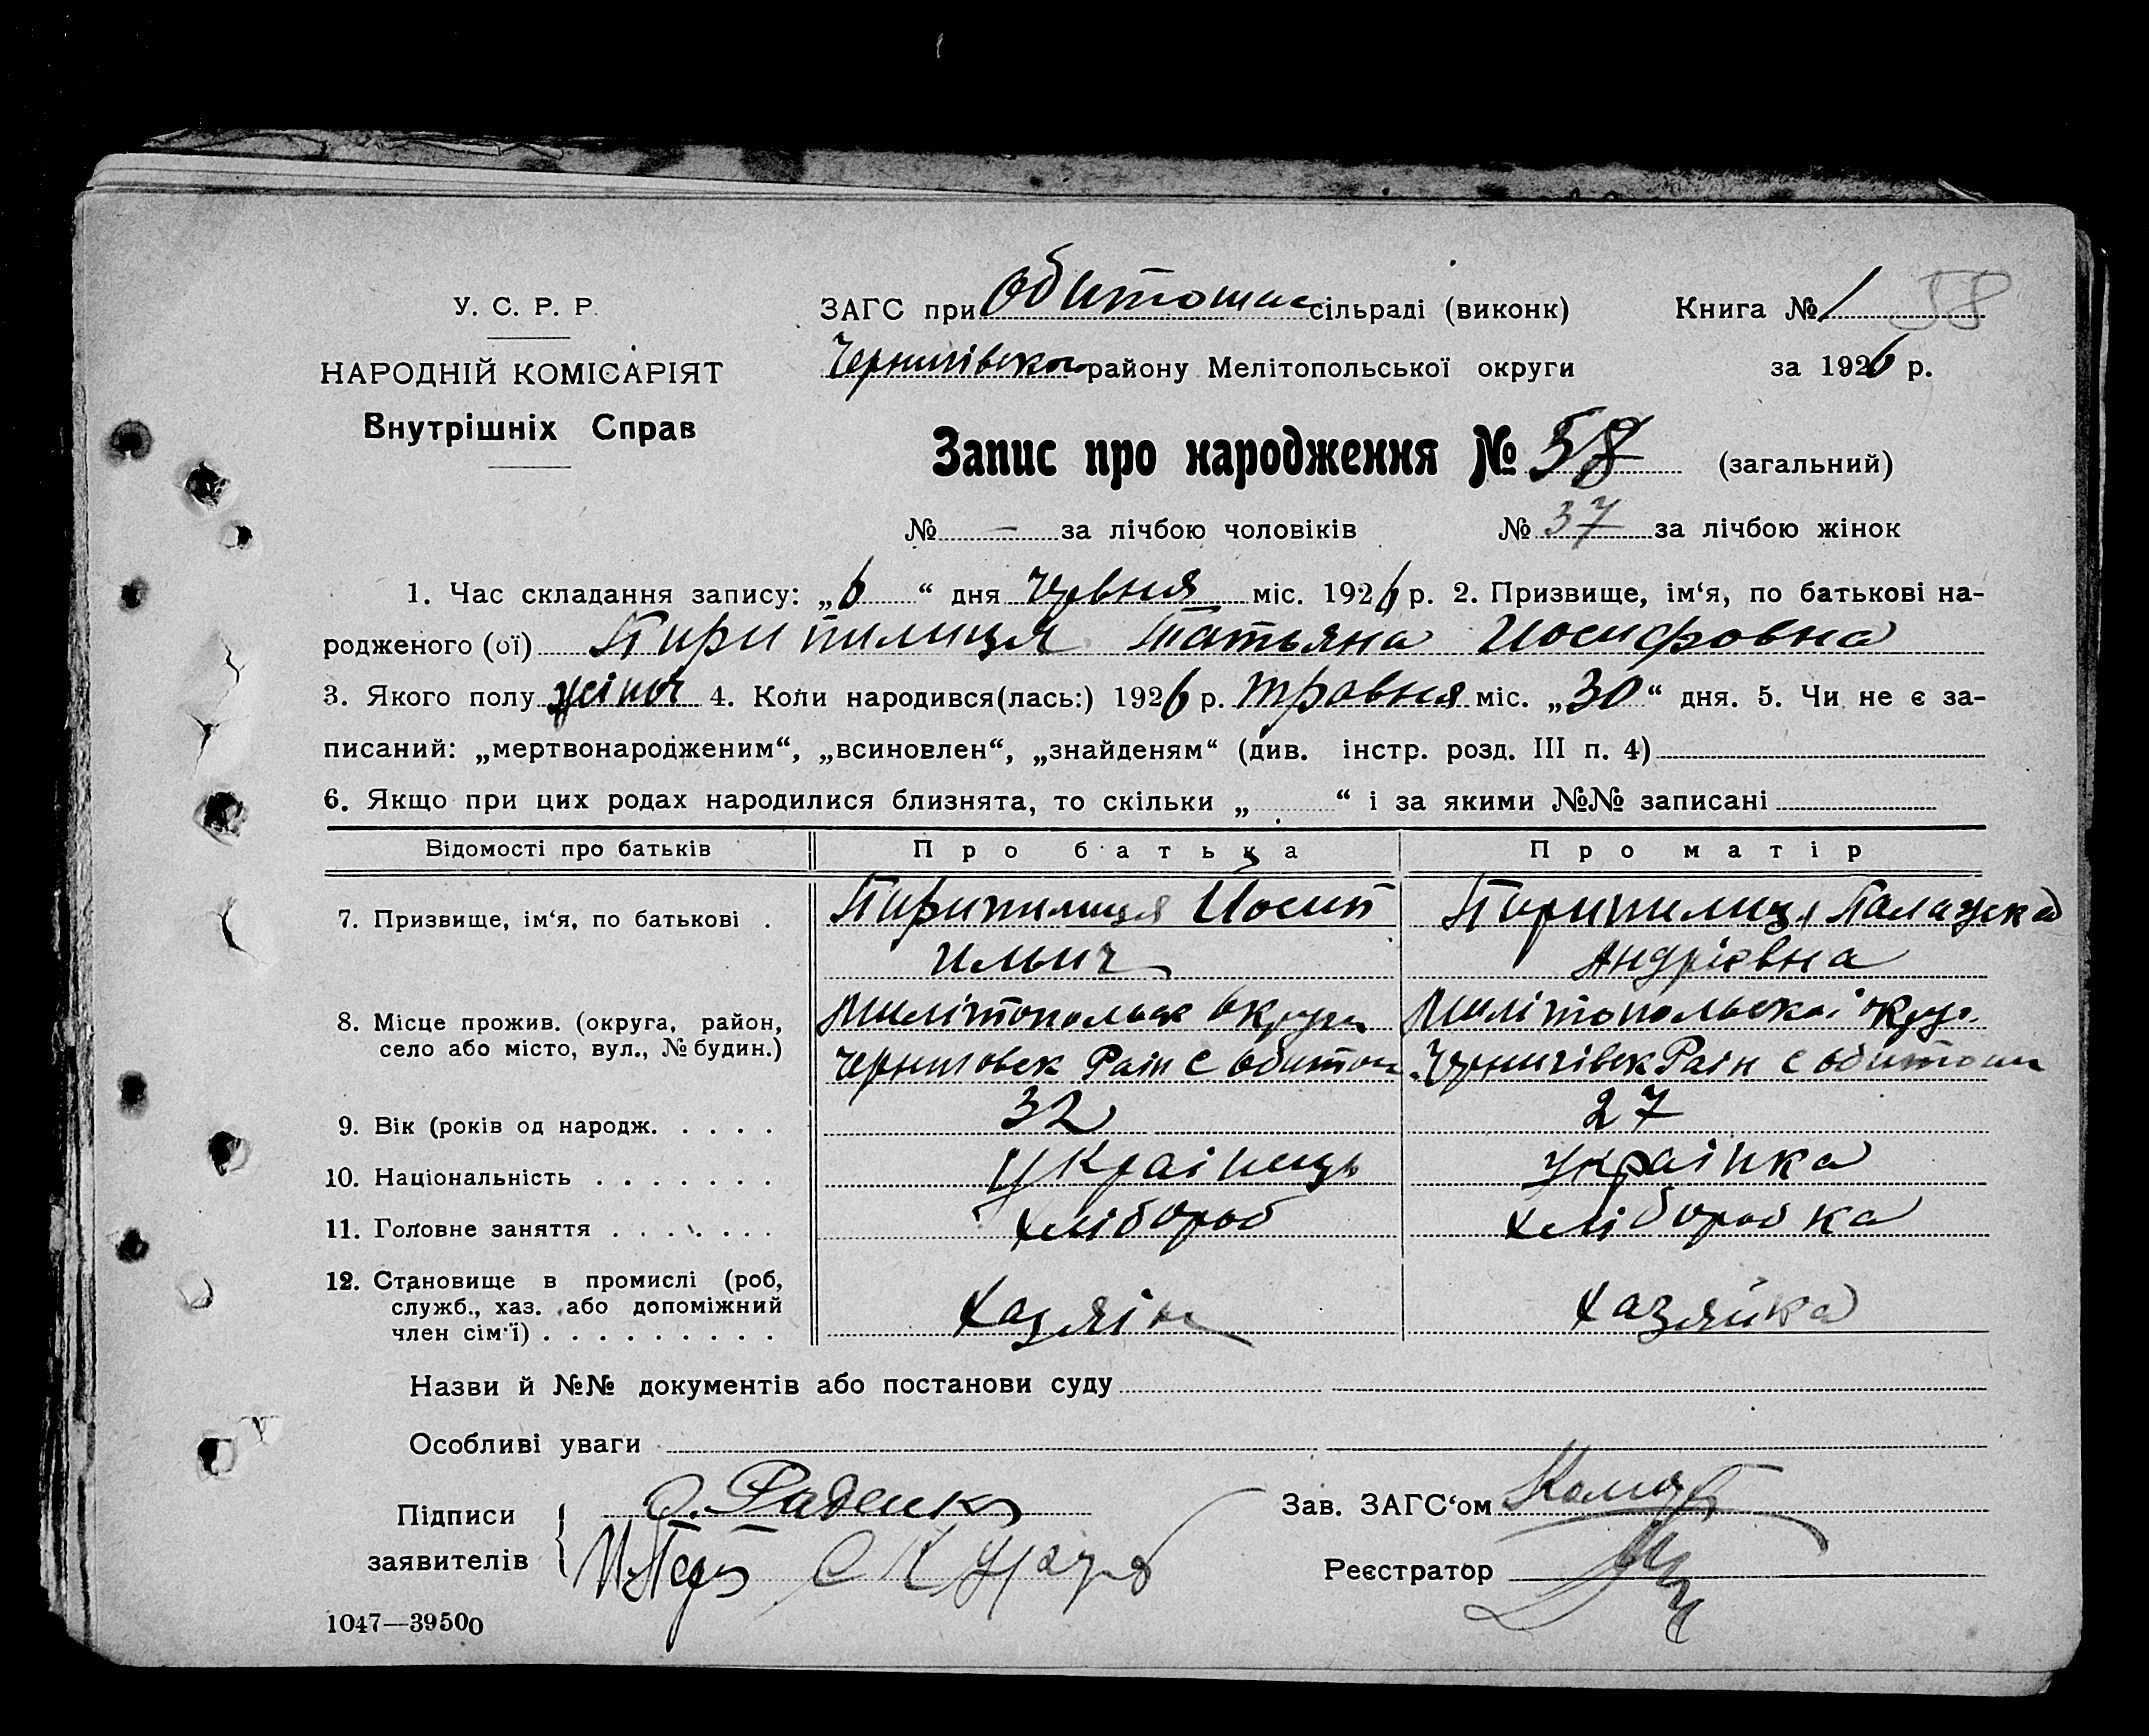 У. С. Р. Р.
НАРОДНІЙ КОМІСАРІЯТ
Внутрішніх Справ
ЗАГС при Обиточне сільраді (виконк) Книга № 1 58
Чернигівського району Мелітопольської округи за 1926 р.
Запис про народження № 58 (загальний)
№ — за лічбою чоловіків № 37 за лічбою жінок
1. Час складання запису: „6“ дня Червня міс. 1926 р. 2. Призвище, ім‘я, по батькові на-
родженого (ої) Пирипилиця Татьяна Иосифовна
3. Якого полу жіноч 4. Коли народився(лась:) 1926 р. травня міс. „30“ дня. 5. Чи не є за-
писаний: „мертвонародженим“, „всиновлен“, „знайденям“ (див. інстр. розд. III п. 4)
6. Якщо при цих родах народилися близнята, то скільки „ “ і за якими №№ записані
Відомості про батьків Про батька Про матір
7. Призвище, ім‘я, по батькові . Пирипилиця Йосип Пирипилиця Палажка
Ильич Андрієвна
8. Місце прожив. (округа, район, Милітопольск округи Милітопольскоі округ.
село або місто, вул., № будин.) Черниговск Раін с Обиточ Чернигівск Раін с Обиточн
9. Вік (років од народж. . . . . 32 27
10. Національність . . . . . . . Украінець Украінка
11. Головне заняття . . . . . . . хлібороб хлiборобка
12. Становище в промислі (роб,
служб., хаз. або допоміжний хазяін хазяйка
член сім‘ї) . . . . . . . . .
Назви й №№ документів або постанови суду
Особливі уваги
Підписи
заявителів
Зав. ЗАГС‘ом
Реєстратор
1047—39500